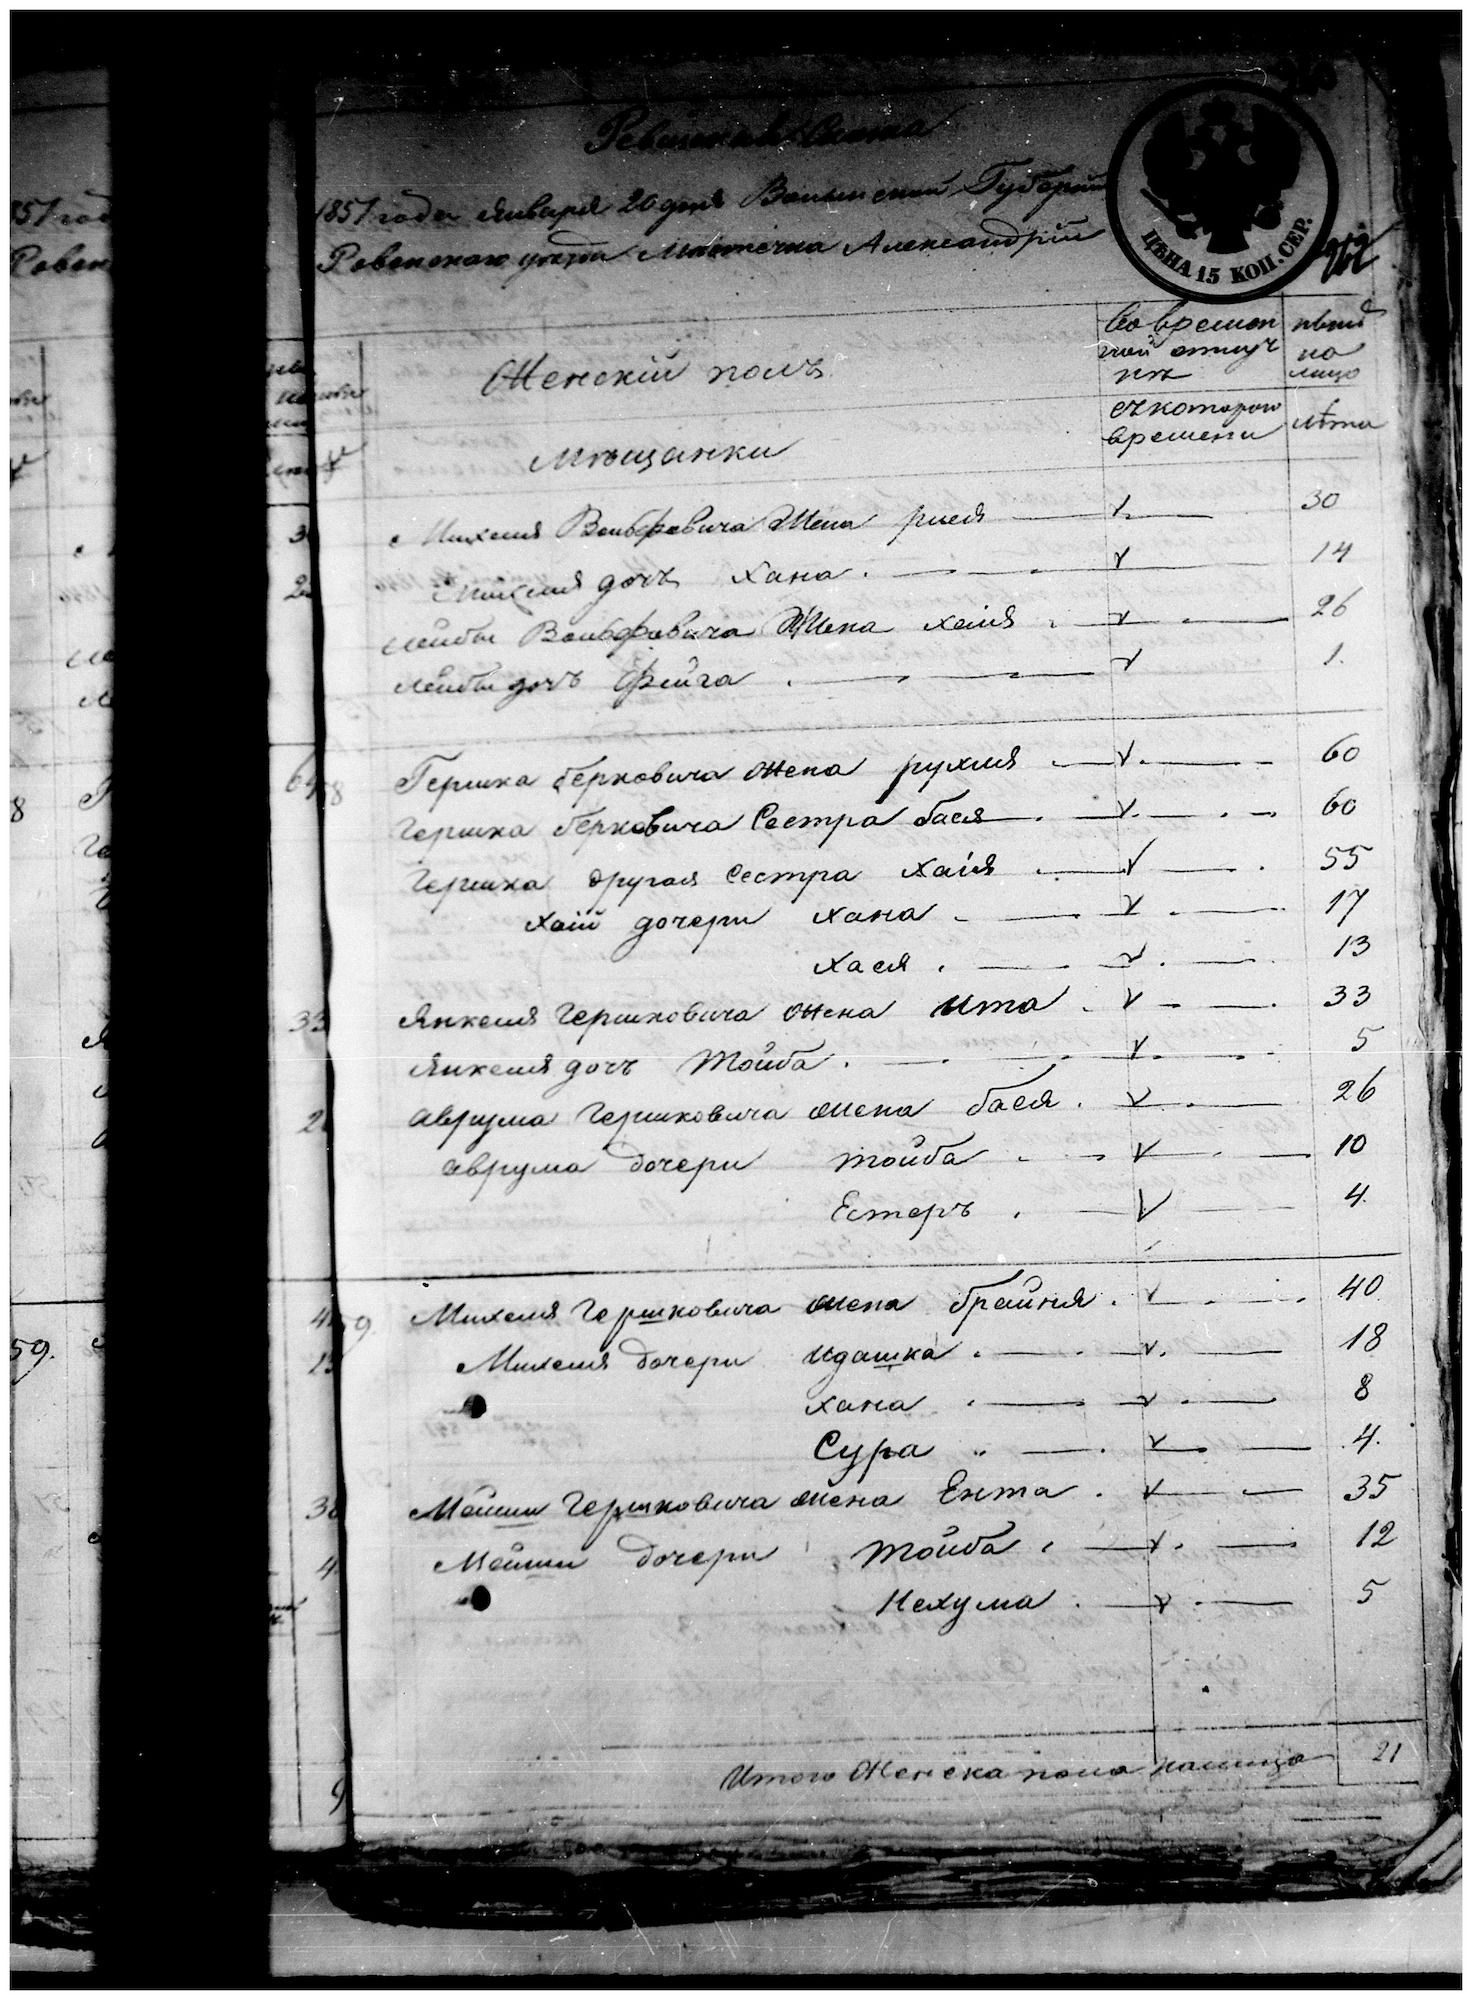 Ревизская Сказка
1857 года Января 20 дня Волынской Губернии
Ровенского уезда Местечка Александріи
ЦѢНА 15 КОП. СЕР.
262
Женскій полъ
Во времен
ной отлуч
кѣ
нынѣ
на
лицо
Мѣщанки
съ котораго
времени
лѣта
Михеля Вольфовича Жена рися 30
Михеля дочь Хана 14
лейбы Вольфовича Жена хаія 26
лейбы дочь Фейга 1.
58 Гершка берковича жена рухля 60
Гершка берковича Сестра бася 60
Гершка другая сестра Хаія 55
Хаіи дочери хана 17
Хася 13
Янкеля Гершковича жена Ита 33
Янкеля дочь Тойба 5
аврума Гершковича жена бася 26
аврума дочери тойба 10
Естеръ 4.
59. Михеля Гершковича жена брайня 40
Михеля дочери идашка 18
хана 8
Сура 4.
Мейши Гершковича жена Ента 35
Мейши дочери Тойба 12
Нехума 5
Итого Женска пола налицо 21